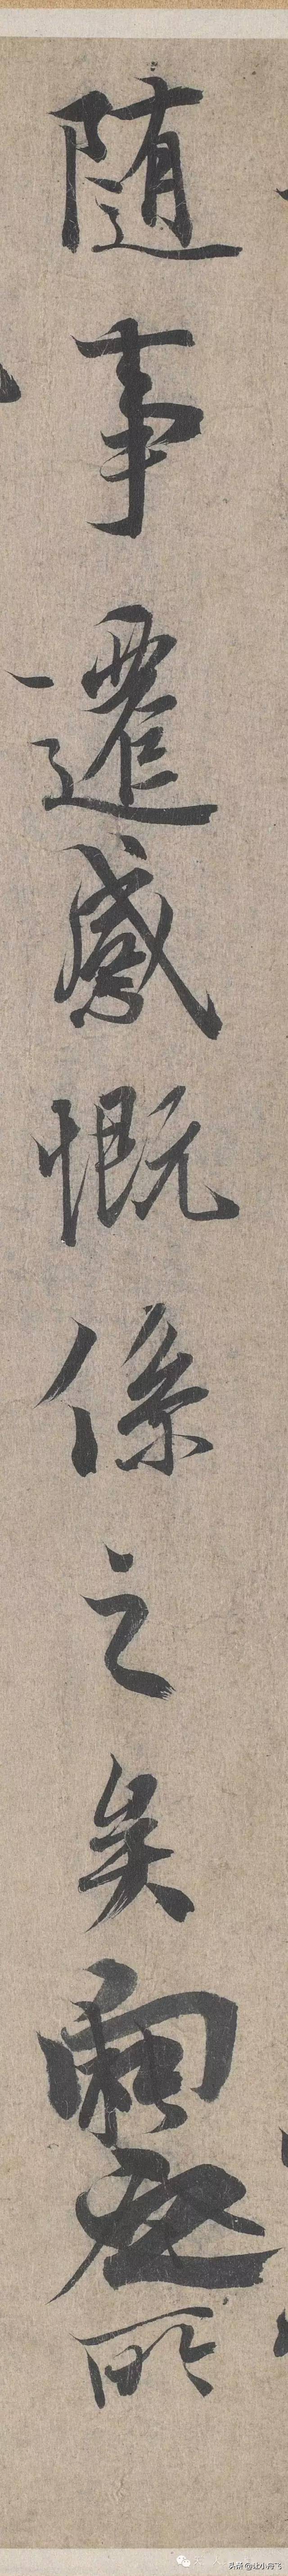 随事遷感慨係之矣向之所